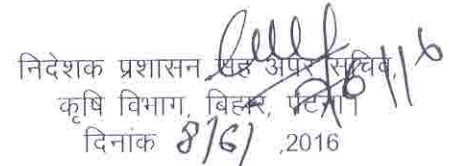 निदेशक प्रशासन सह अपर सचिव,
कृषि विभाग, बिहार, पटना।
दिनांक 8/6/ ,2016